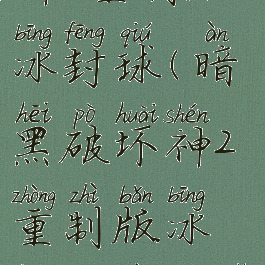 bīng fēng qiú àn
冰封球(暗
hēi pò huài shén
黑破坏神2
zhòng zhì bǎn bīng
重制版冰